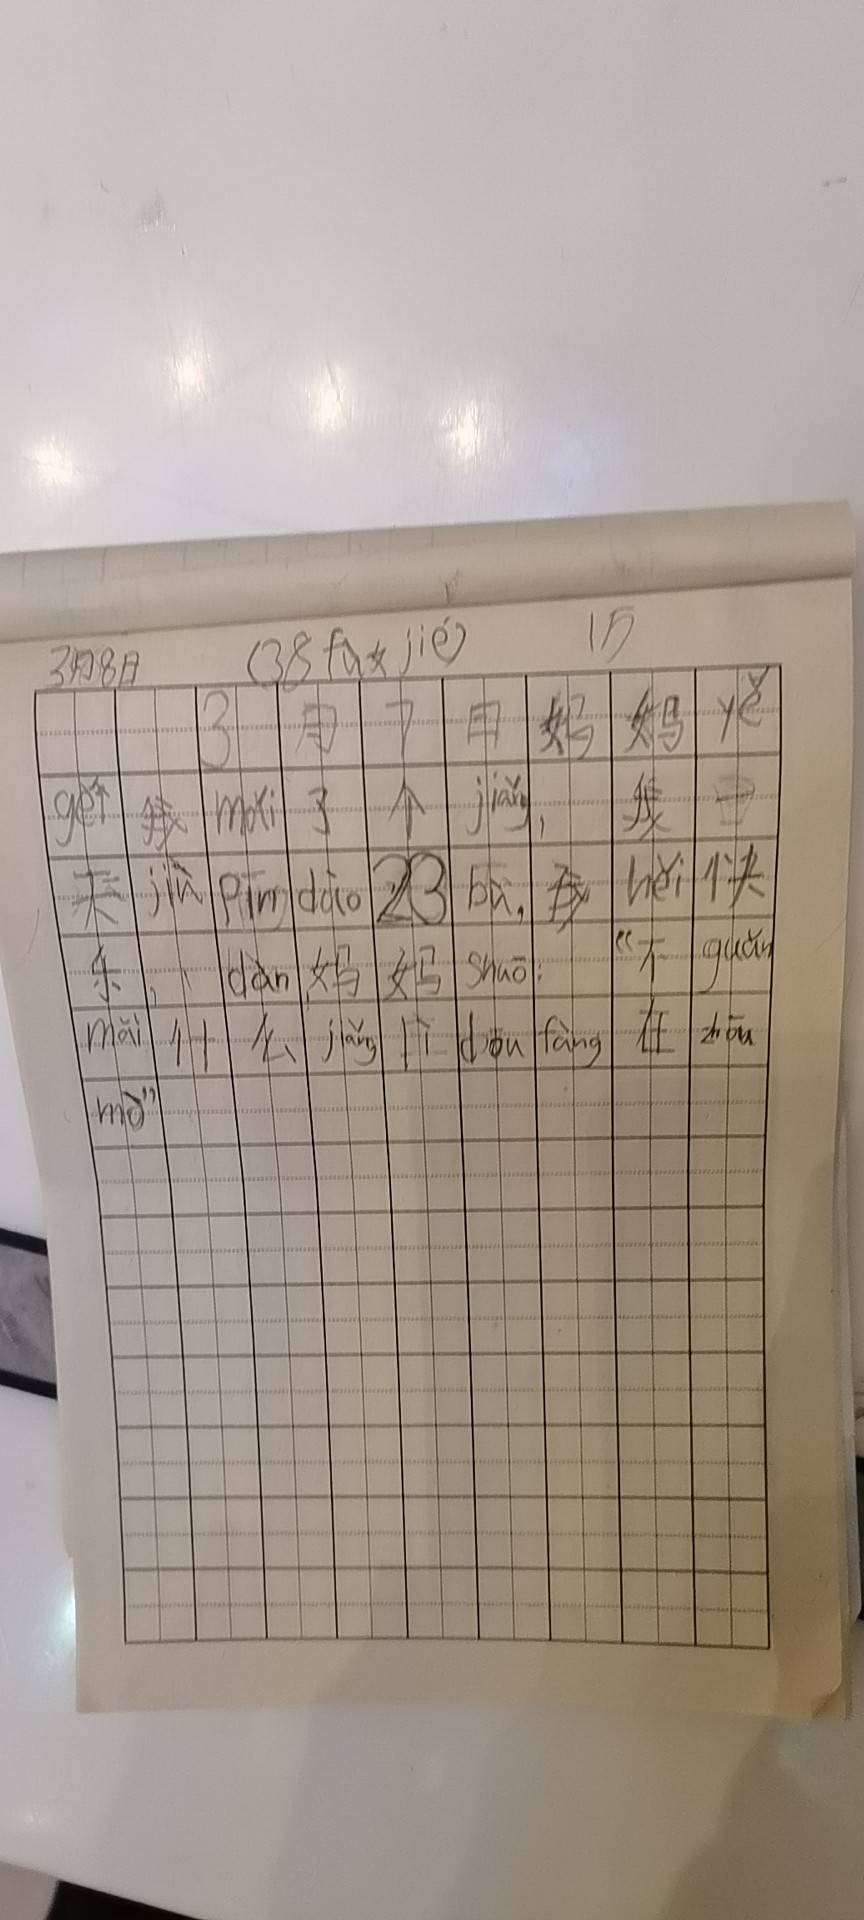 3月8日 (38 fù女jié) 1历
3月7日妈妈yě
gět我mǎi了个jiǎng,我回
来jiù Pīn dào 23 bù,我hěi快
乐, dàn妈妈shuō:“不guǎn
mǎi什么jiǎng dōu fàng在zhōu
mò”